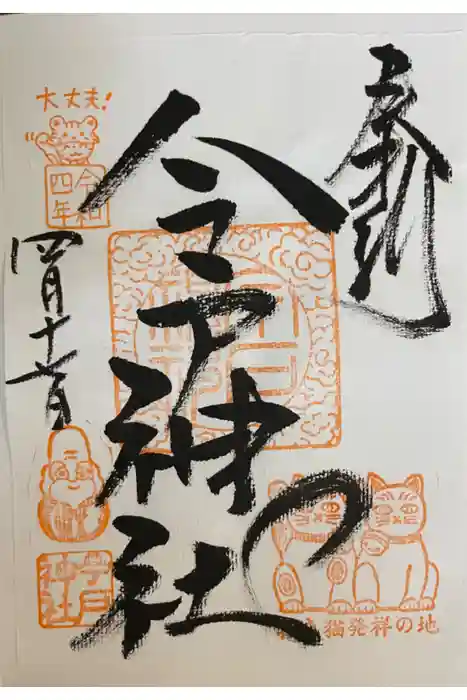 奉拝
今戸神社
大丈夫!
令和
四年
四月十
今戸
神社
猫発祥の地